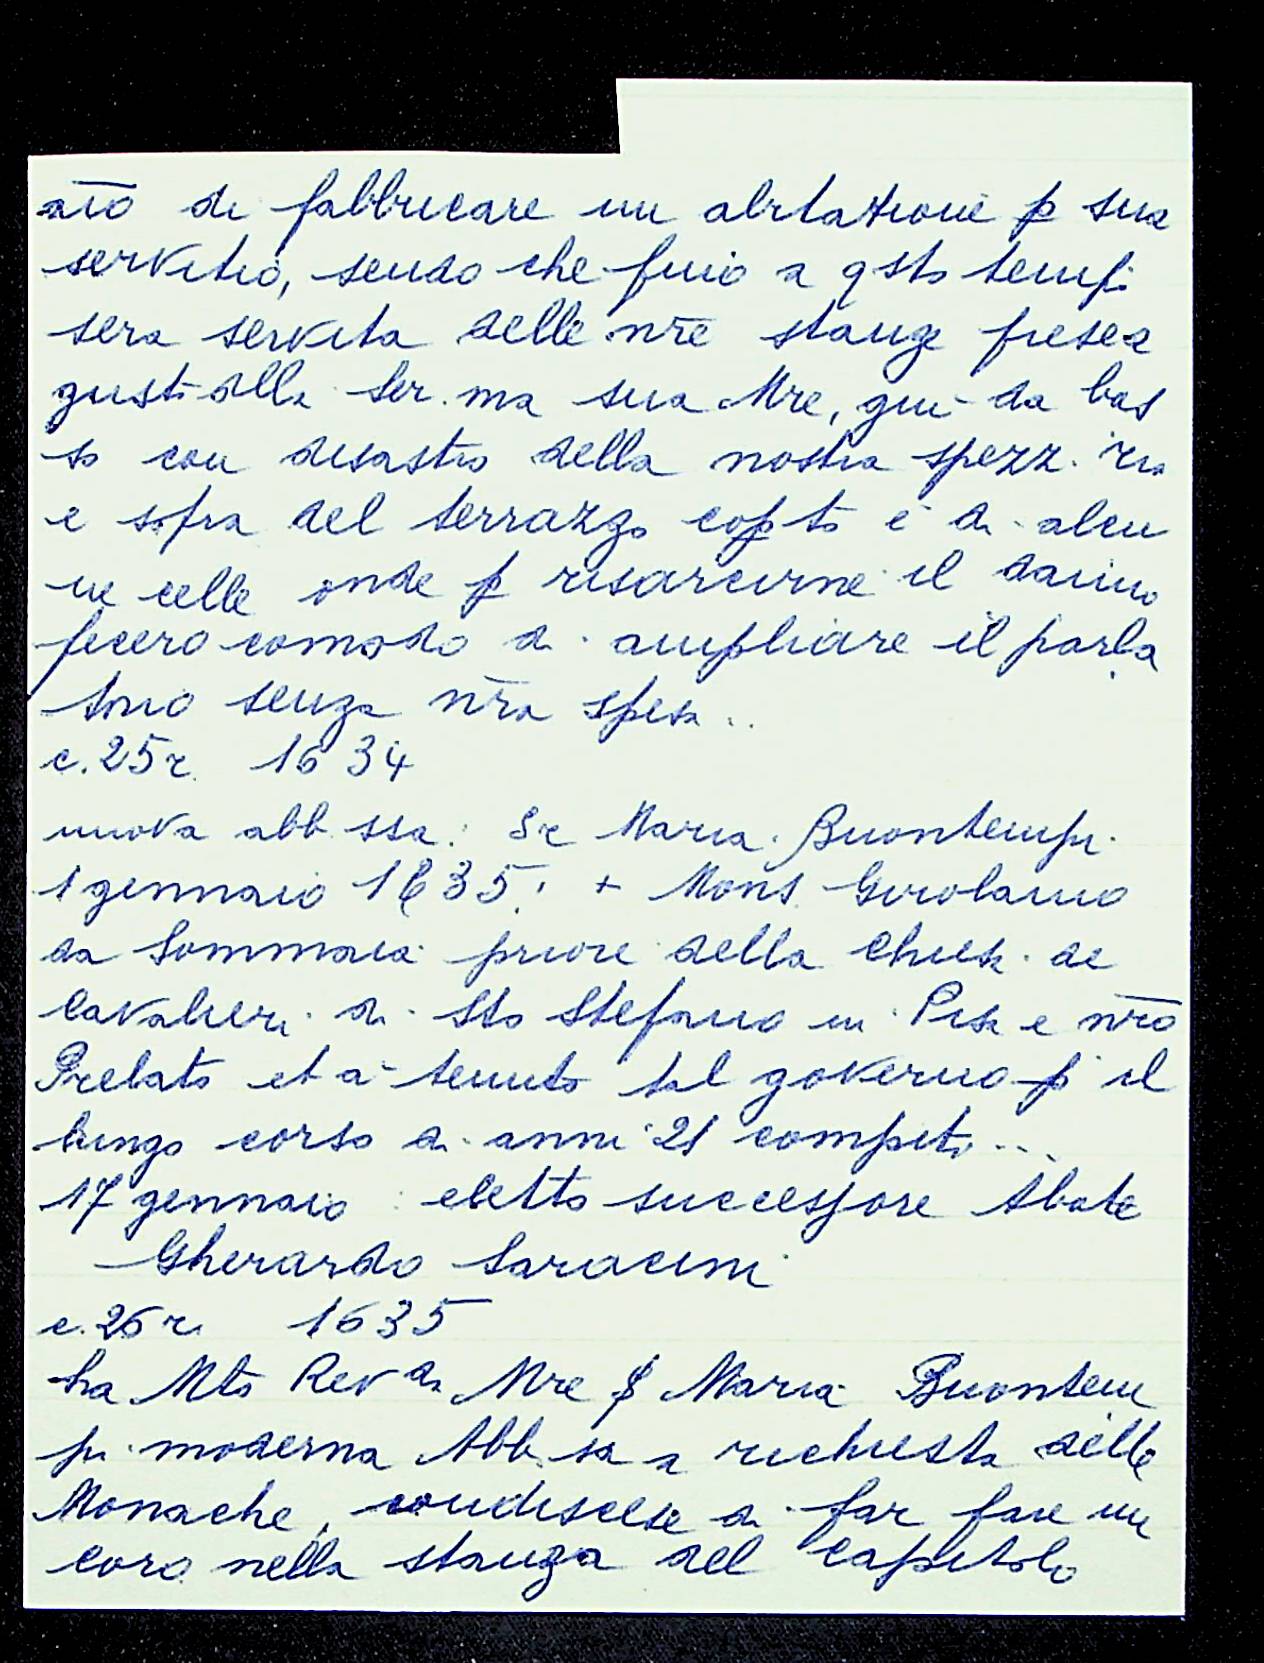 aīo di fabbricare un abitatione p sua
servitio, sendo che fino a qsto tempi
sera servita delle nr̄e stanze fresca
gusti della Ser.ma sua Mre, qui da bas
so con disastro della nostra spezz. ria
e sopra del terrazzo copto e di alcu
ne celle onde p risarcirne il danno
fecero comodo di ampliare il parla
torio senza nr̄a spesa ..
c. 25 r. 1634
nuova abb.ssa: Sr Maria Buontempi
1 gennaio 1635: + Mons. Girolamo
da Sommaia priore della Chiesa de
Cavalieri di Sto Stefano in Pisa e nr̄o
Prelato et a tenuto tal governo p il
lungo corso di anni 21 compiti ...
17 gennaio: eletto successore Abate
Gherardo Saracini
c. 26 r. 1635
La Mto Revda Mre S Maria Buontem
pi moderna Abb.sa a richiesta delle
Monache, condiscese di far fare un
coro nella stanza del Capitolo